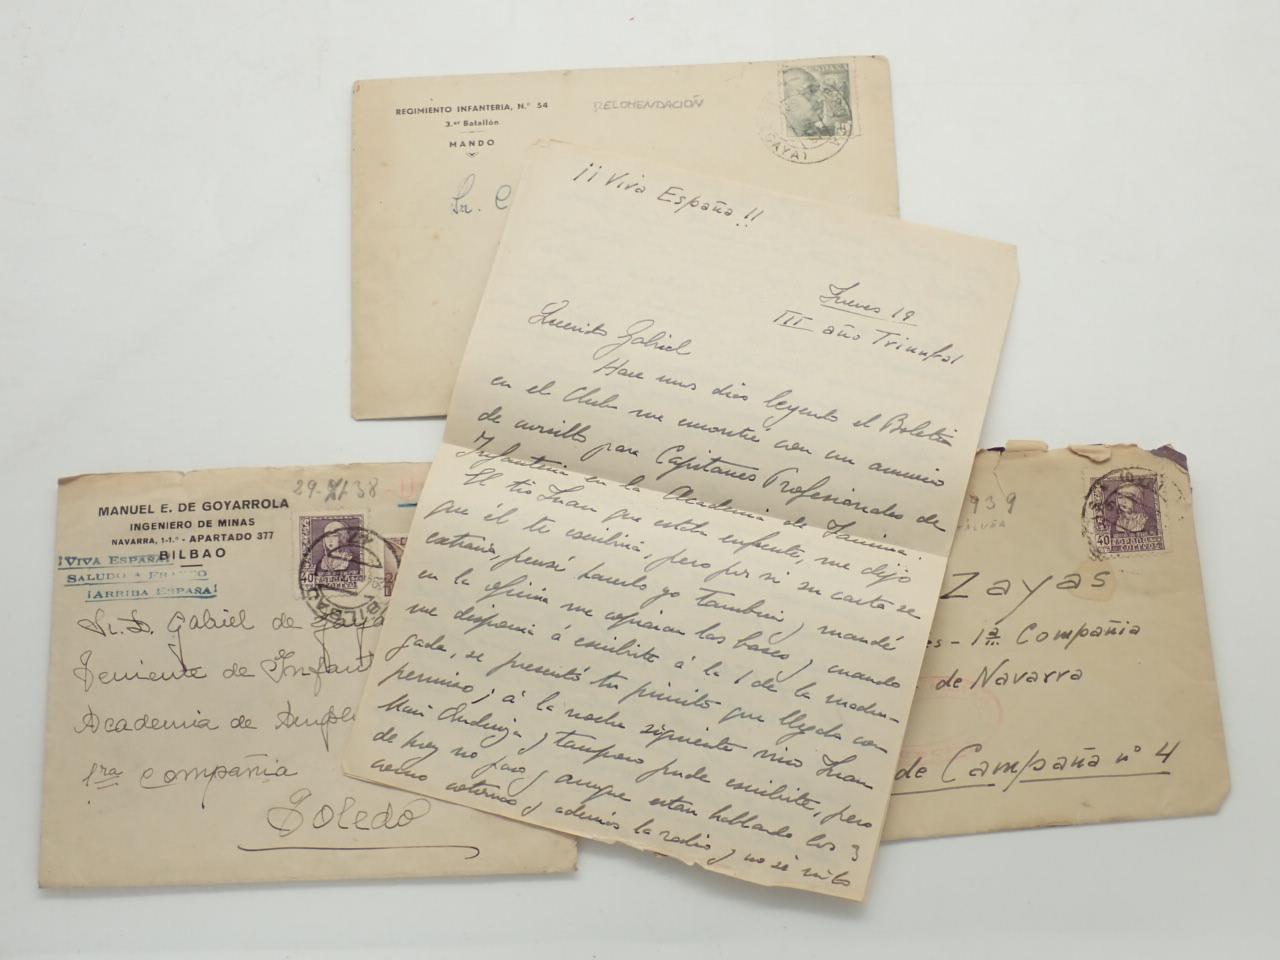 REGIMIENTO INFANTERIA, N.º 54
3.er Batallón
MANDO
RECOMENDACIÓN
ESPAÑA
Sr.
¡¡Viva España!!
Jueves 19
III año Triunfal
Querido Gabriel
Hace unos dias leyendo el Boletin
en el Club me encontré con un anuncio
de cursillo para Capitanes Profesionales de
Infanteria en la Academia de
El tio Juan que está enfrente, me dijo
que él te escribiria, pero por si su carta se
extravia, pensé hacerlo yo tambien y mandé
en la oficina me copiaran las bases y cuando
me disponia á escribirte á la 1 de la madru-
gada, se presentó tu primito que llegaba con
permiso; á la noche siguiente vino Juan
Mari y tampoco pude escribirte, pero
de hoy no pasa, y aunque estan hablando los 3
como cotorras y además la radio y no sé
29-XI-38
MANUEL E. DE GOYARROLA
INGENIERO DE MINAS
NAVARRA, 1-1.º - APARTADO 377
BILBAO
¡VIVA ESPAÑA!
SALUDO A FRANCO
¡ARRIBA ESPAÑA!
40
BILBAO
Sr. D. Gabriel de Zaya
Teniente de Infant
Academia de
1ra Compañia
Toledo
939
40
ESPAÑA
CORREOS
Zayas
es - 1ª Compañia
de Navarra
de Campaña nº 4